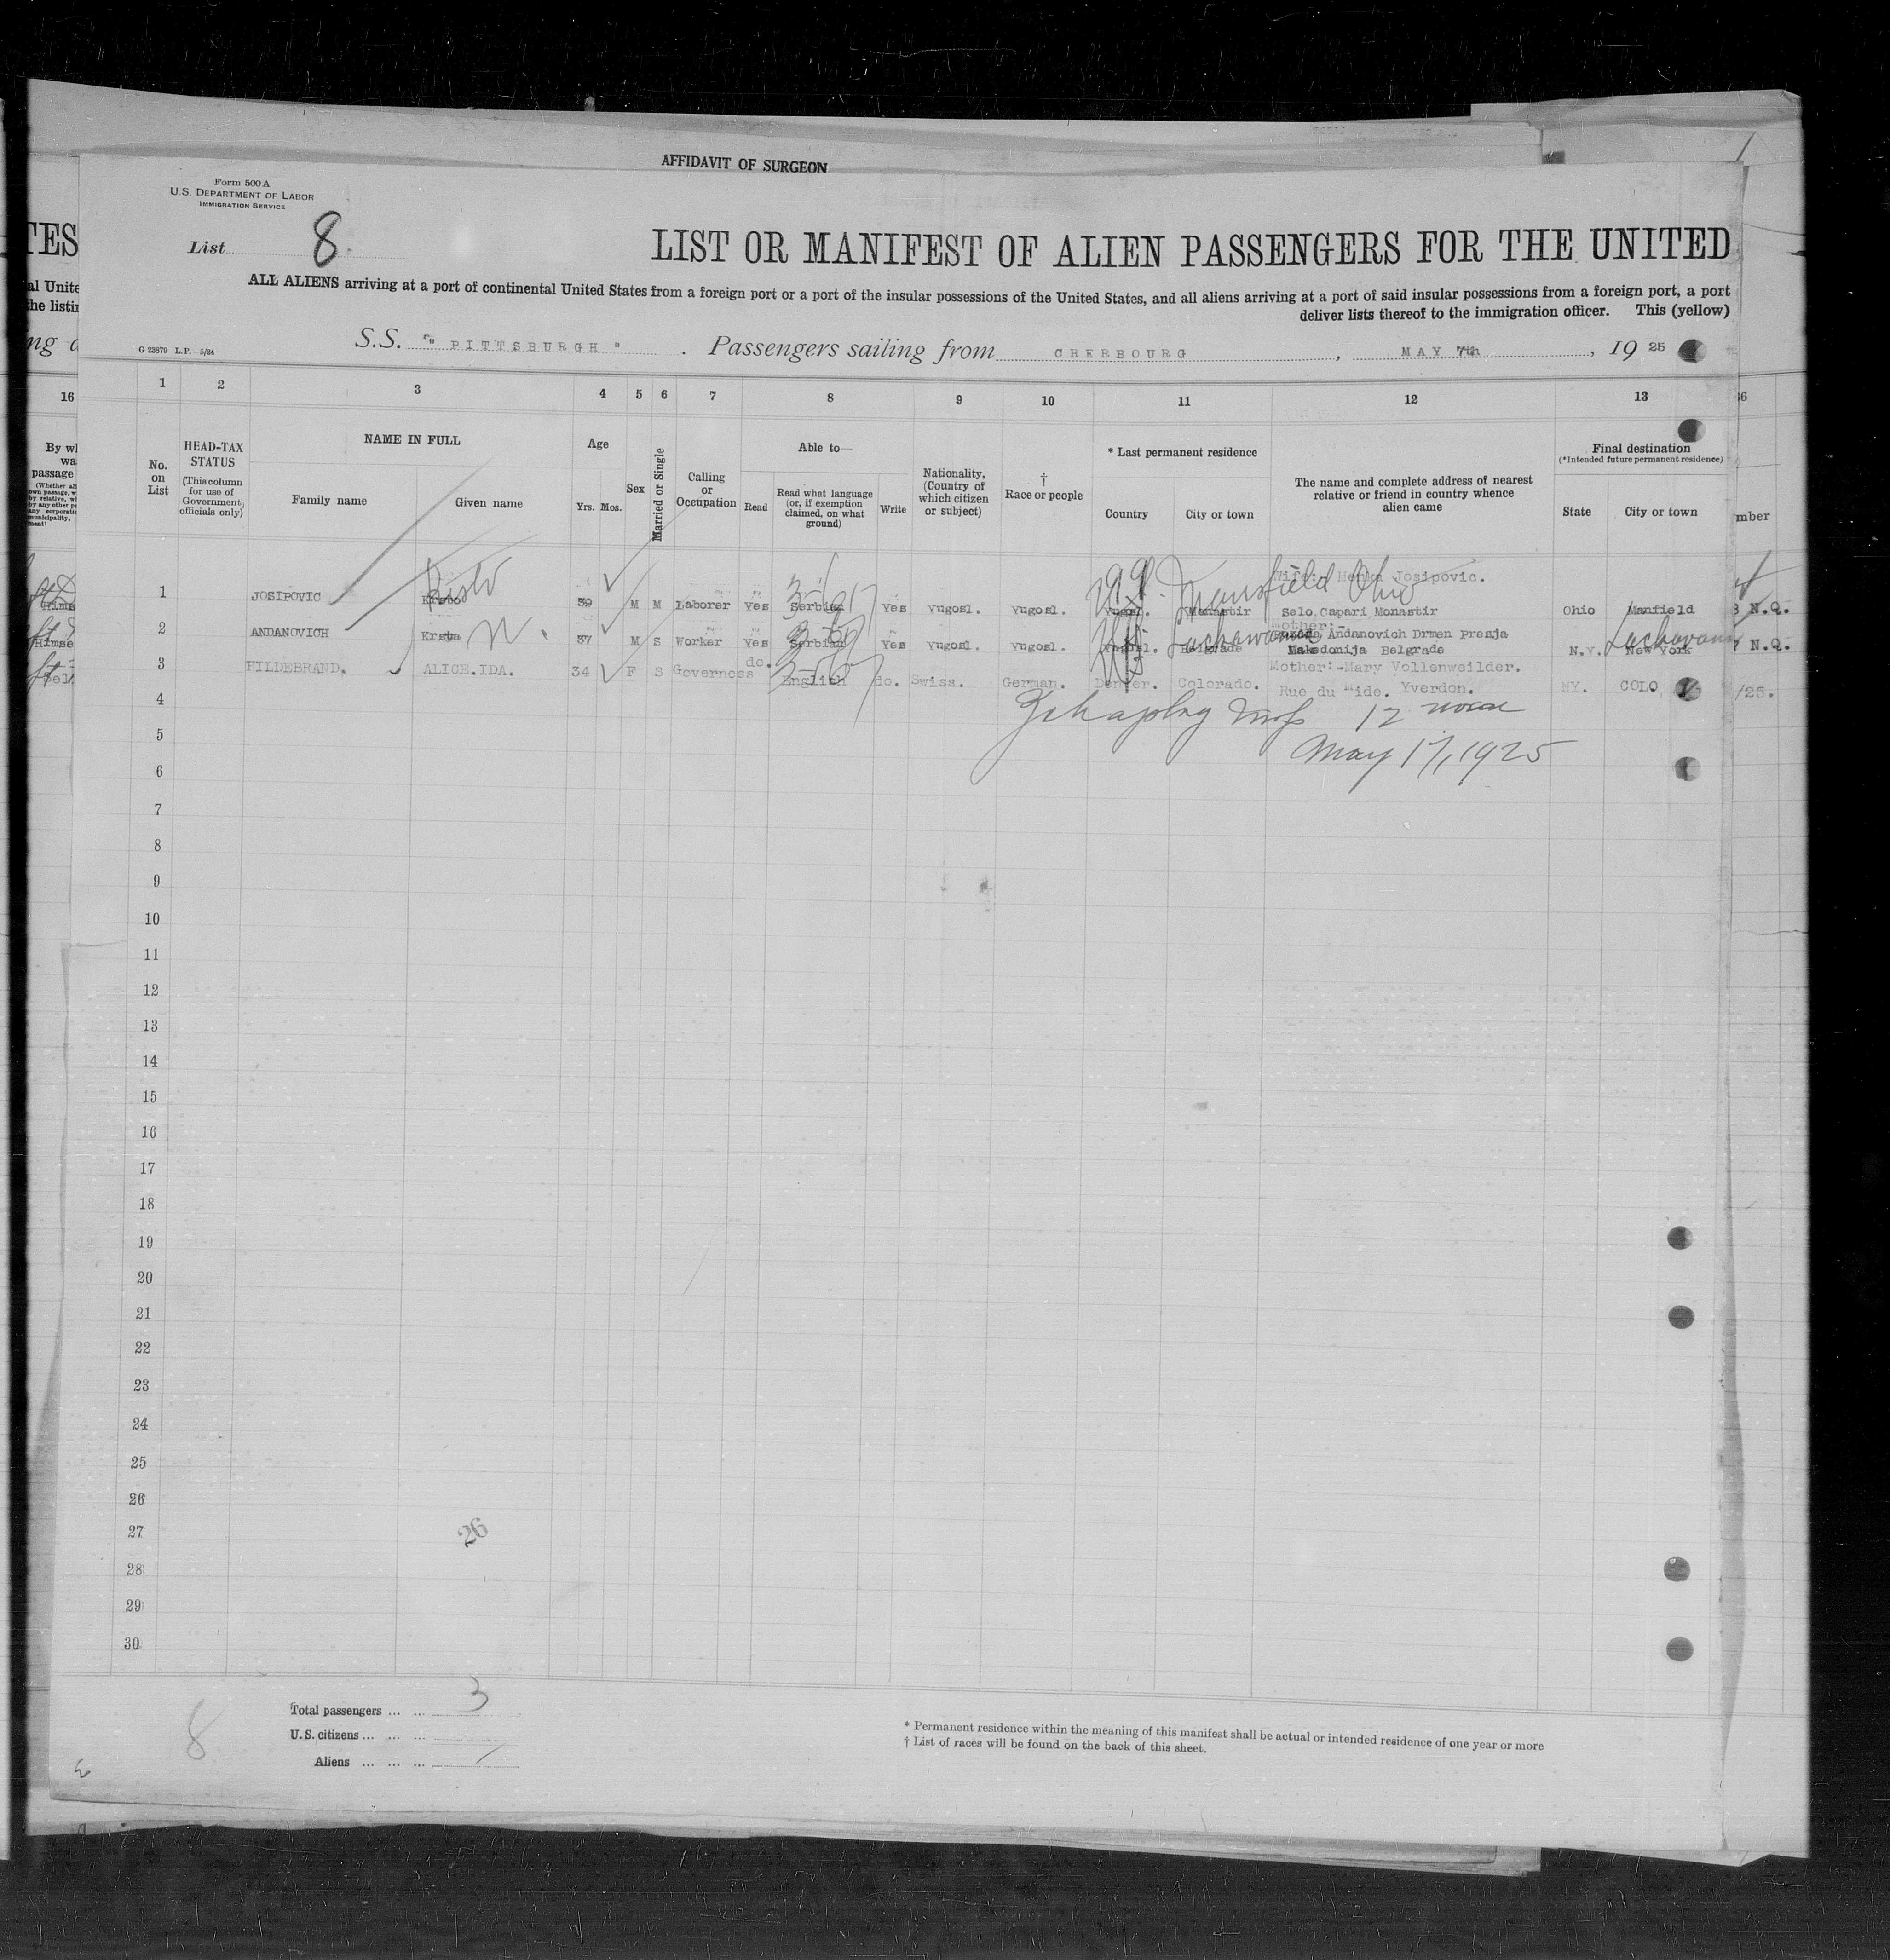 AFFIDAVIT OF SURGEON
Form 500 A
U.S. DEPARTMENT OF LABOR
IMMIGRATION SERVICE
List 8
LIST OR MANIFEST OF ALIEN PASSENGERS FOR THE UNITED
ALL ALIENS arriving at a port of continental United States from a foreign port or a port of the insular possessions of the United States, and all aliens arriving at a port of said insular possessions from a foreign port, a port
deliver lists thereof to the immigration officer. This (yellow)
G 23879 L.P.—5/24
S.S. " PITTSBURGH " . Passengers sailing from CHERBOURG , MAY 7th , 19 25
1 2 3 4 5 6 7 8 9 10 11 12 13
No. on List
HEAD-TAX STATUS (This column for use of Government officials only)
NAME IN FULL
Family name Given name
Age
Yrs. Mos.
Sex
Married or Single
Calling or Occupation
Able to—
Read Read what language (or, if exemption claimed, on what ground) Write
Nationality, (Country of which citizen or subject)
† Race or people
* Last permanent residence
Country City or town
The name and complete address of nearest relative or friend in country whence alien came
Final destination
(*Intended future permanent residence)
State City or town
Risto Mansfield Ohio Wife: Menka Josipovic.
1 JOSIPOVIC 39 M M Laborer Yes Serbian Yes Yugosl. Yugosl. Yugosl. Monastir Selo Capari Monastir Ohio Manfield
Mother:-
2 ANDANOVICH Krsta N. 37 M S Worker Yes Serbian Yes Yugosl. Yugosl. Yugosl. Belgrade Andanovich Drmen Presja N.Y. New York
Lackawanna Makedonija Belgrade Lackawanna
Mother:-Mary Vollenweilder.
3 HILDEBRAND. ALICE.IDA. 34 F S Governess do. English do. Swiss. German. Denver. Colorado. Rue du Mide. Yverdon. NY. COLO
4 12 noon
5 May 17, 1925
6
7
8
9
10
11
12
13
14
15
16
17
18
19
20
21
22
23
24
25
26
27 26
28
29
30
Total passengers ... ... 3
U.S. citizens ... ... ...
Aliens ... ... ...
8
* Permanent residence within the meaning of this manifest shall be actual or intended residence of one year or more
† List of races will be found on the back of this sheet.